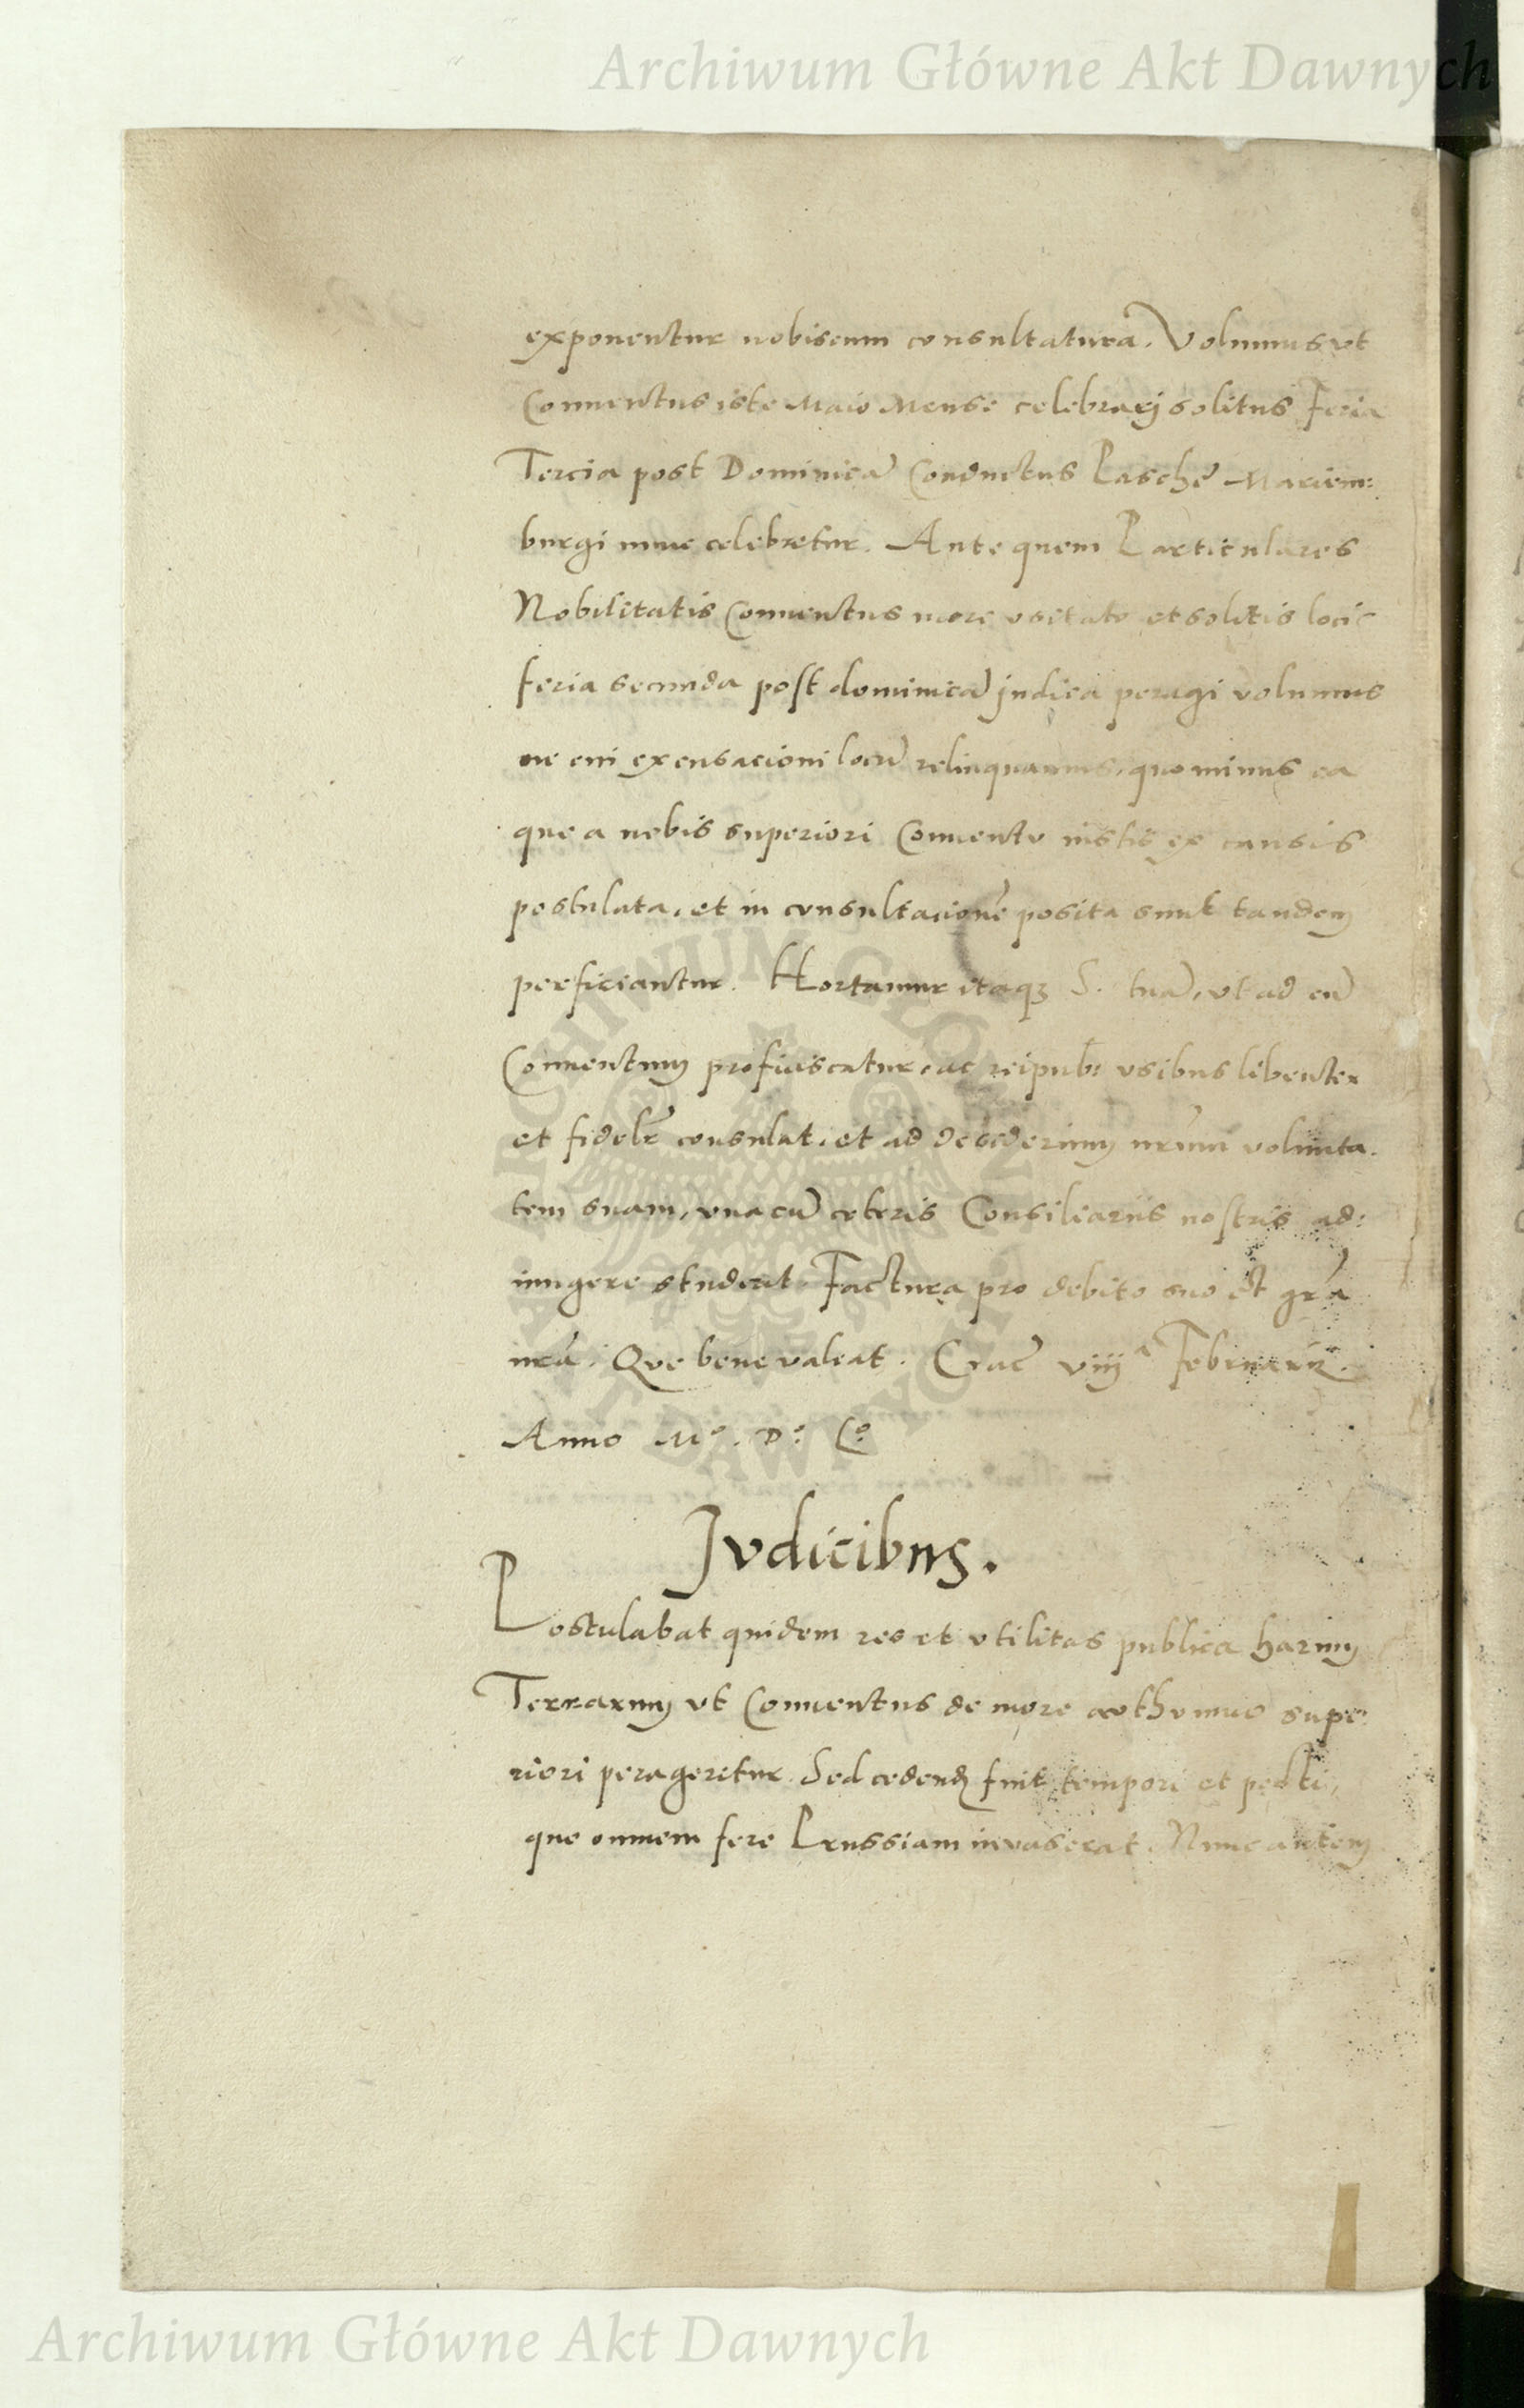 Archiwum Główne Akt Dawnych
exponentur nobiscum consultatura. Volumus vt
Conuentus iste Maio Mense celebrarj solitus Feria
Tercia post Dominicã Conductus Paschẽ Mariem:
burgi nunc celebretur. Ante quem Particulares
Nobilitatis Conuentus more vsitato et solitis locis
feria secunda post dominicã judica peragi volumus
ne cui excusacioni locũ relinquamus, quominus ea
que a nobis superiori Conuentu iustis ex causis
postulata, et in consultacionẽ posita sunt tandem
perficiantur. Hortamur itaqꝫ S. tuã, vt ad eũ
Conuentum proficiscatur, ac reipub: vsibus libenter
et fidelr̃ consulat, et ad desiderium nr̃um volunta.
tem suam, vna cũ ceteris Consiliariis nostris ad:
iungere studeat. Factura pro debito suo et gr̃a
nr̃a. Que bene valeat. Crac̃ viijᵃ Februarii
Anno Mº. Dº. Lº
ARCHIWUM GŁÓWNE AKT DAWNYCH
Judicibus.
Postulabat quidem res et vtilitas publica harum
Terrarum vt Conuentus de more authumno supe:
riori perageretur. Sed cedendũ fuit tempori et pesti,
que omnem fere Prussiam invaserat. Nunc autem
Archiwum Główne Akt Dawnych